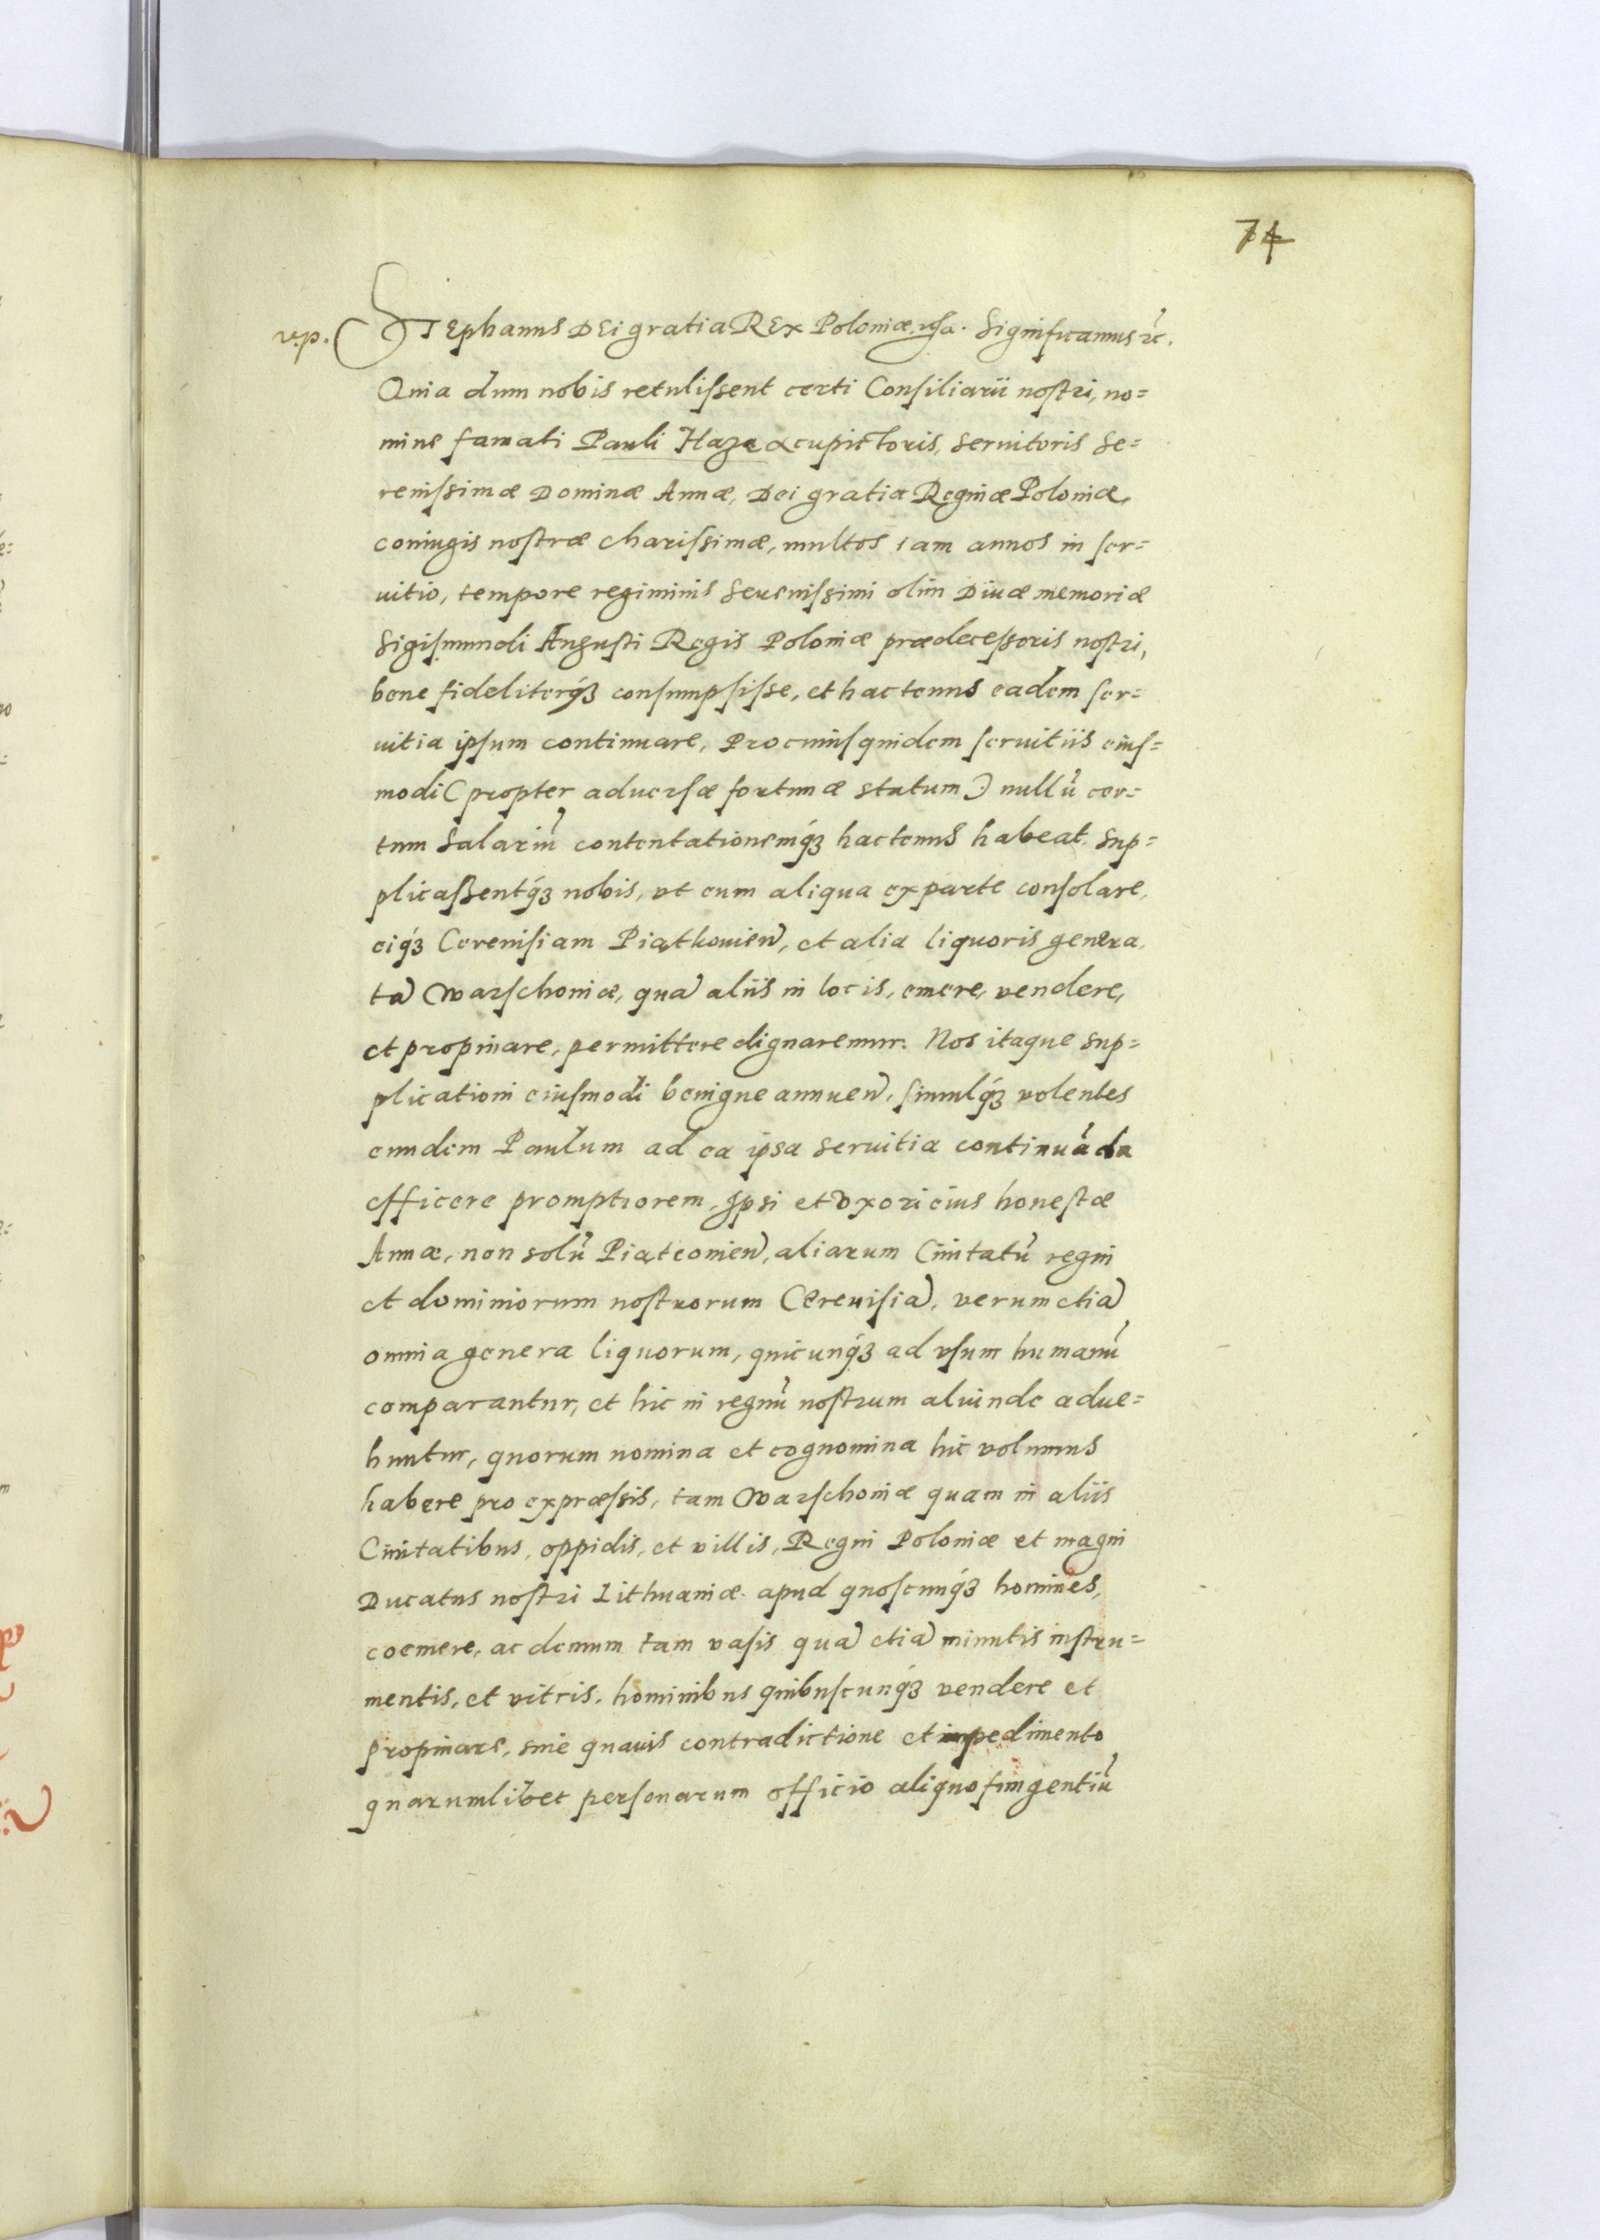 74
v.p. STEphanus DEi gratia REx Poloniæ, etc. Significamus etc.
Quia dum nobis retulissent certi Consiliarii nostri, no=
mine famati Pauli Haza acupictoris, seruitoris Se=
renissimæ Dominæ Annæ, Dei gratia Reginæ Poloniæ,
coniugis nostræ charissimæ, multos iam annos in ser=
uitio, tempore regiminis serenissimi olim Diuæ memoriæ
Sigismundi Augusti Regis Poloniæ prædecessoris nostri,
bene fideliterq́ꝫ consumpsisse, et hactenus eadem ser=
uitia ipsum continuare, Pro cuiusquidem seruitiis eius=
modi (propter aduersæ fortunæ statum) nullũ cer=
tum salariũ contentationemq́ꝫ hactenus habeat, sup=
plicassentq́ꝫ nobis, vt eum aliqua ex parte consolare,
eiq́ꝫ Cereuisiam Piątkouien̄, et alia liquoris genera,
tā Warschouiæ, quā aliis in locis, emere, vendere,
et propinare, permittere dignaremur. Nos itaque sup=
plicationi eiusmodi benigne annuen̄, simulq́ꝫ volentes
eundem Paulum ad ea ipsa seruitia continuãda
efficere promptiorem, Ipsi et vxori eius honestæ
Annæ, non solũ Piąteconien̄, aliarum Ciuitatũ regni
et dominiorum nostrorum Cereuisiā, verum etiā
omnia genera liquorum, quicunq́ꝫ ad vsum humanũ
comparantur, et hic in regnũ nostrum aliunde adue=
huntur, quorum nomina et cognomina hic volumus
habere pro expræssis, tam Warschouiæ quam in aliis
Ciuitatibus, oppidis, et villis, Regni Poloniæ et magni
Ducatus nostri Lithuaniæ apud quoscunq́ꝫ homines,
coemere, ac demum tam vasis quā etiā minutis instru=
mentis, et vitris, hominibus quibuscunq́ꝫ vendere et
propinare, sine quauis contradictione et impedimento
quarumlibet personarum officio aliquo fungentiũ